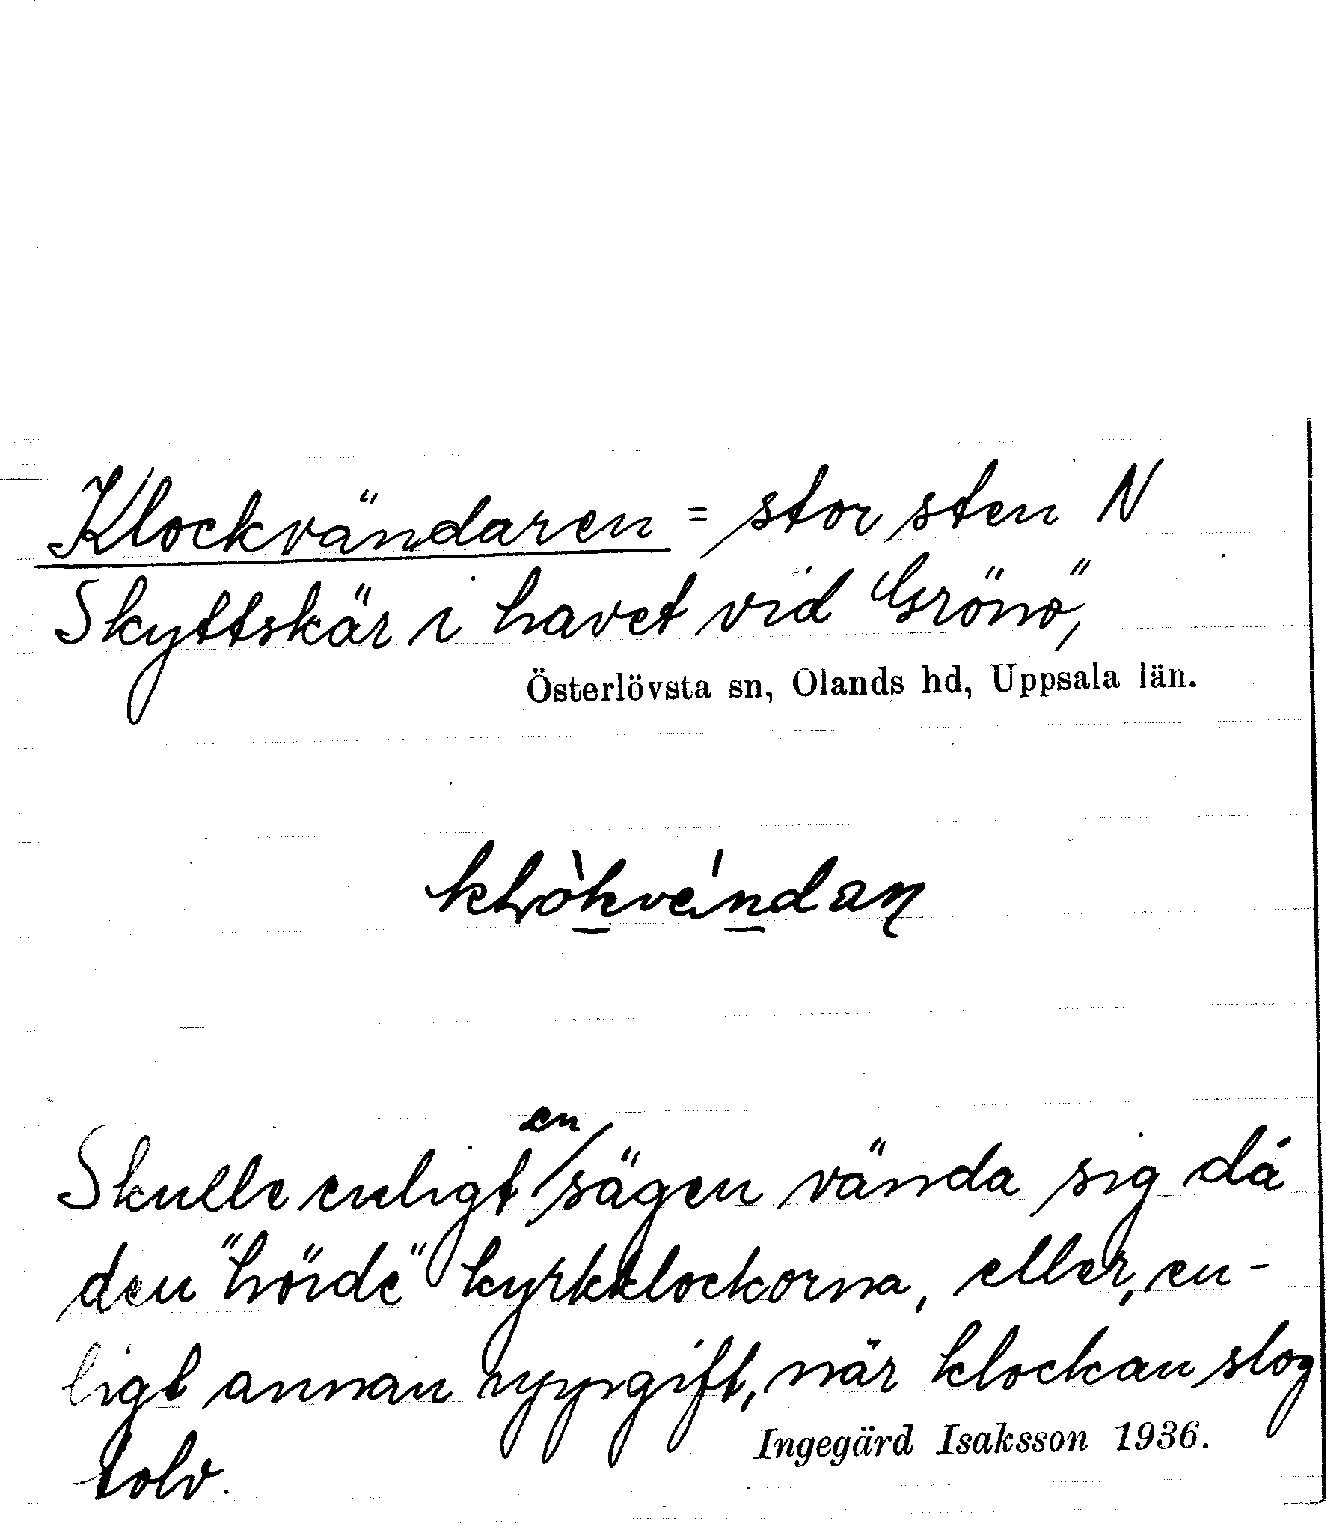 Klockvändaren = stor sten N
Skyttskär i havet vid Grönö,
Österlövsta sn, Olands hd, Uppsala län.
Skulle enligt en sägen vända sig då
den "hörde" kyrkklockorna, eller, en-
ligt annan uppgift, när klockan slog
tolv.
Ingegärd Isaksson 1936.